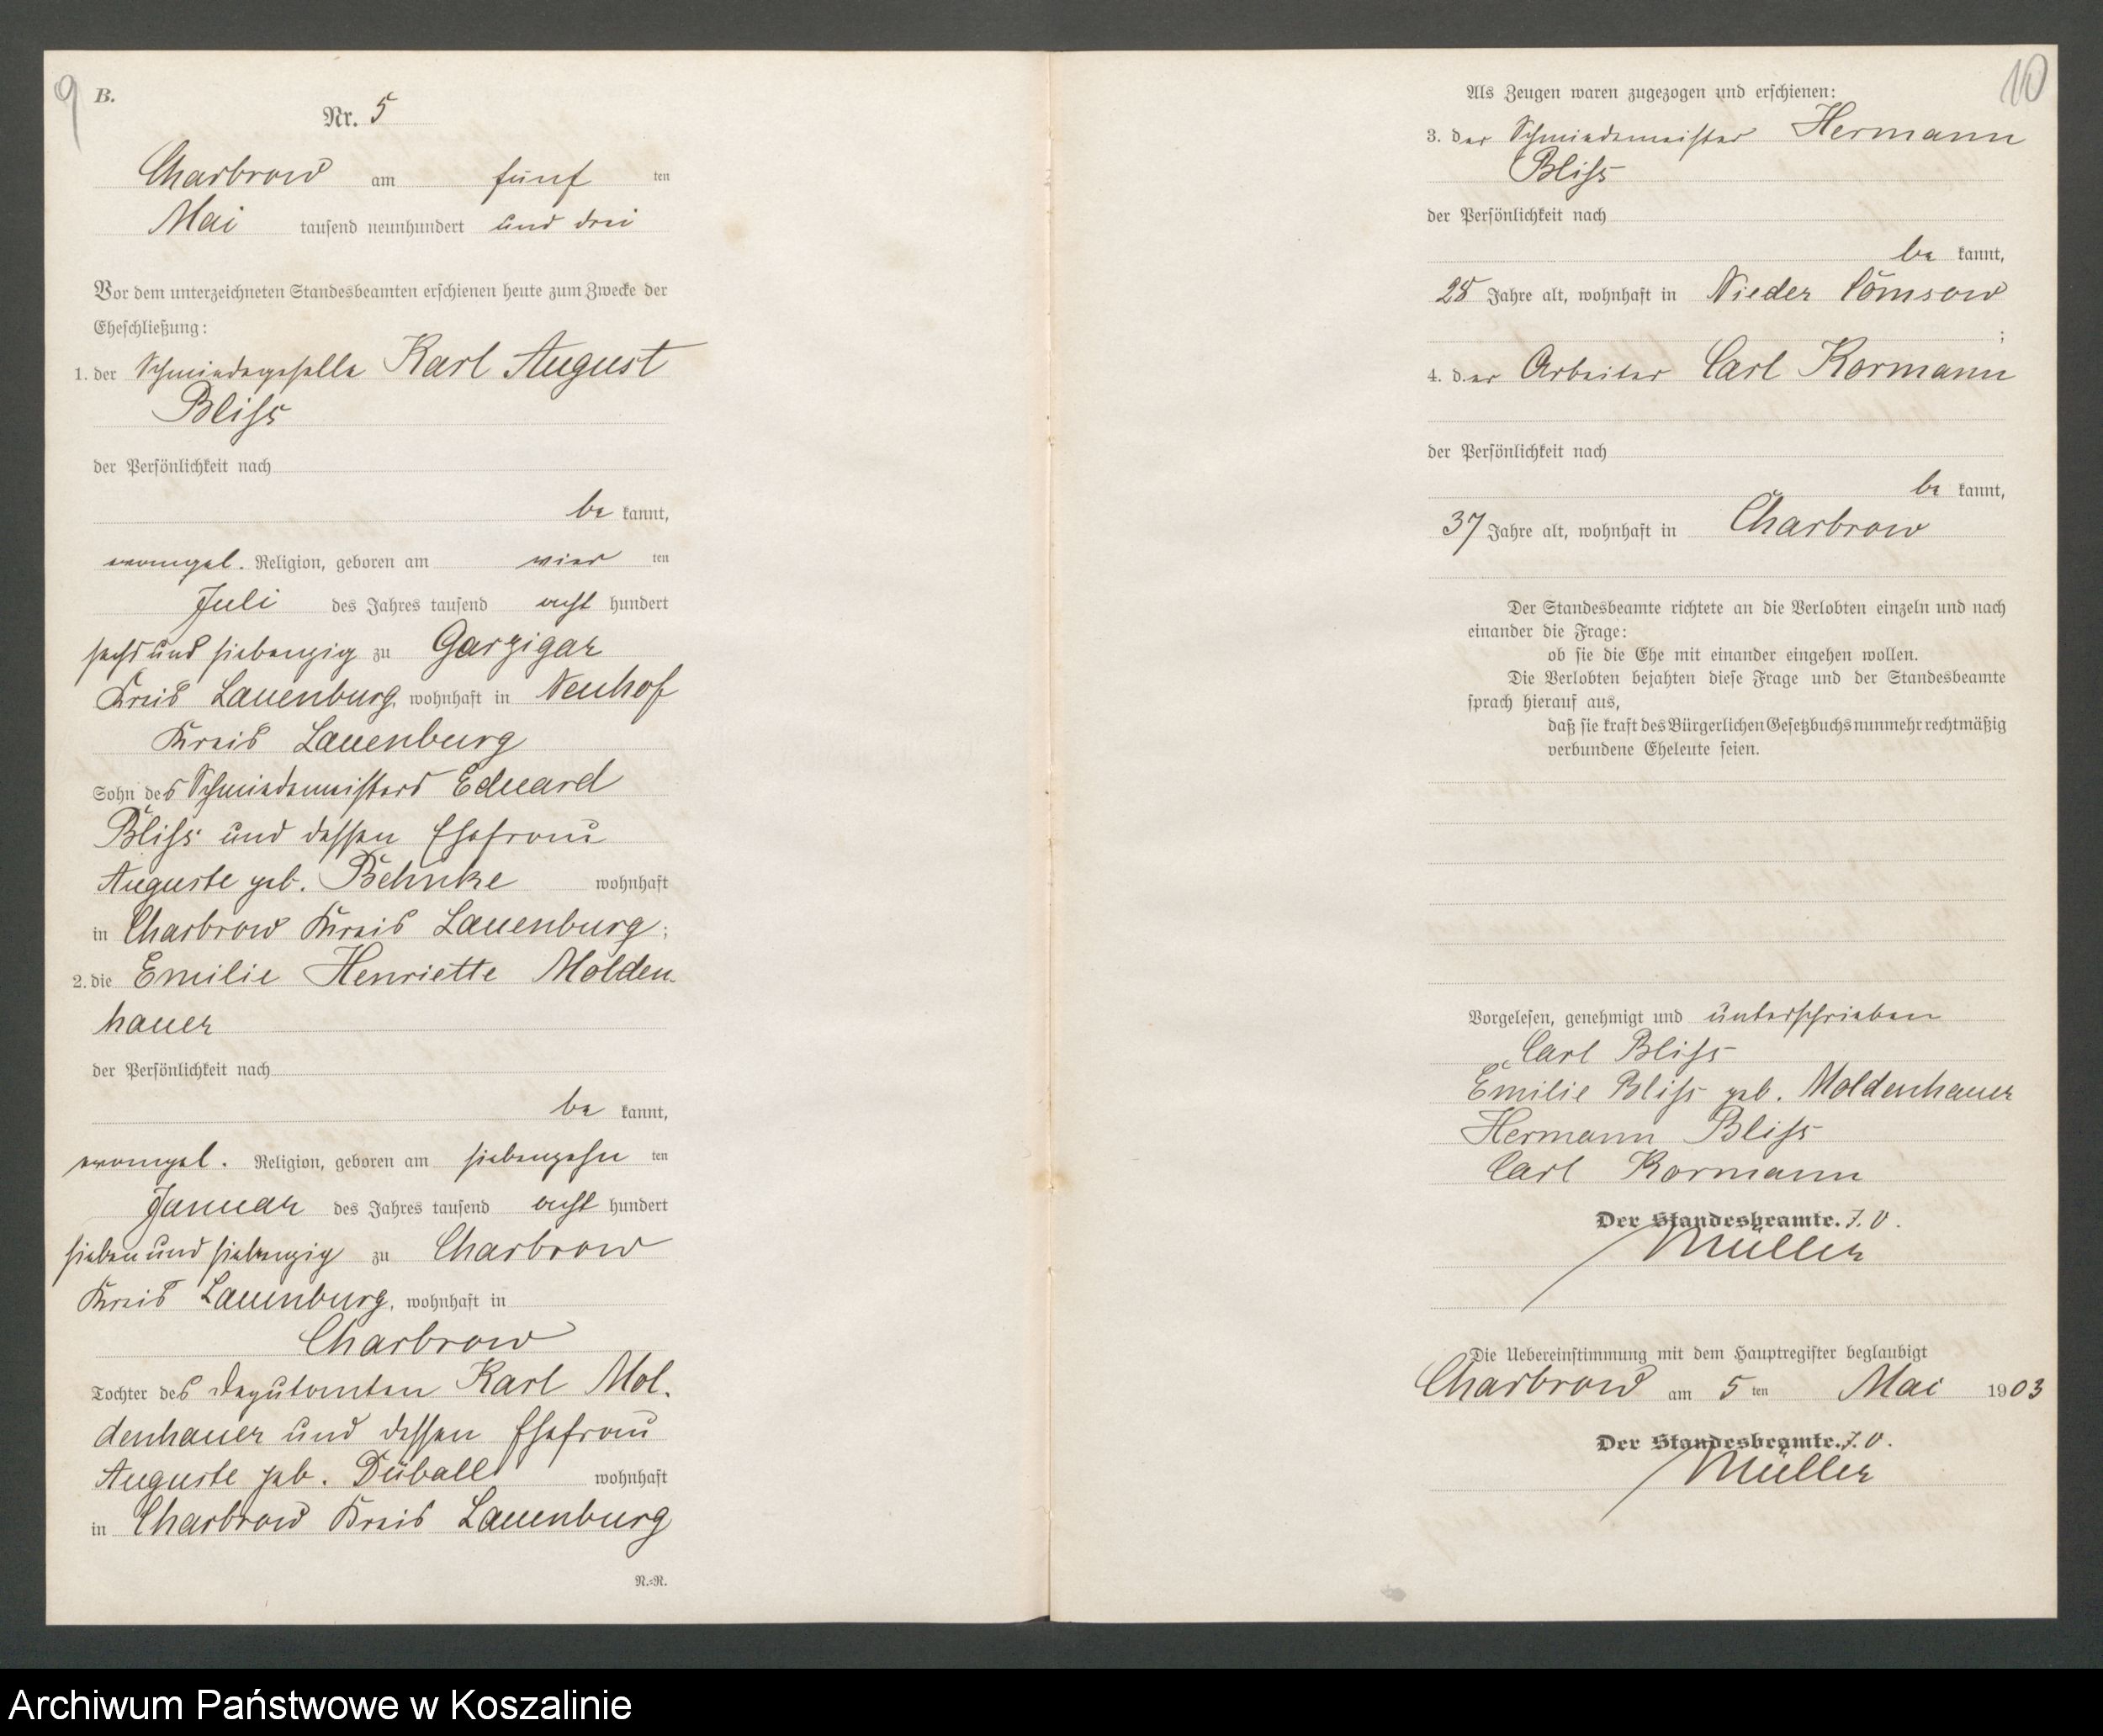 9
B.
Nr. 5
Charbrow am fünf ten
Mai tausend neunhundert und drei
Vor dem unterzeichneten Standesbeamten erschienen heute zum Zwecke der
Eheschließung:
1. der Schmiedegeselle Karl August
Bliss
der Persönlichkeit nach
be kannt,
evangel. Religion, geboren am vier ten
Juli des Jahres tausend acht hundert
sechs und siebenzig zu Garzigar
Kreis Lauenburg, wohnhaft in Neuhof
Kreis Lauenburg
Sohn des Schmiedemeisters Eduard
Bliss und dessen Ehefrau
Auguste geb. Behnke wohnhaft
in Charbrow Kreis Lauenburg;
2. die Emilie Henriette Molden-
hauer
der Persönlichkeit nach
be kannt,
evangel. Religion, geboren am siebenzehn ten
Januar des Jahres tausend acht hundert
sieben und siebenzig zu Charbrow
Kreis Lauenburg, wohnhaft in
Charbrow
Tochter des Deputanten Karl Mol-
denhauer und dessen Ehefrau
Auguste geb. Düball wohnhaft
in Charbrow Kreis Lauenburg
N.-R.
10
Als Zeugen waren zugezogen und erschienen:
3. der Schmiedemeister Hermann
Bliss
der Persönlichkeit nach
be kannt,
28 Jahre alt, wohnhaft in Nieder Lömsow
;
4. der Arbeiter Carl Kormann
der Persönlichkeit nach
be kannt,
37 Jahre alt, wohnhaft in Charbrow
Der Standesbeamte richtete an die Verlobten einzeln und nach
einander die Frage:
ob sie die Ehe mit einander eingehen wollen.
Die Verlobten bejahten diese Frage und der Standesbeamte
sprach hierauf aus,
daß sie kraft des Bürgerlichen Gesetzbuchs nunmehr rechtmäßig
verbundene Eheleute seien.
Vorgelesen, genehmigt und unterschrieben
Carl Bliss
Emilie Bliss geb. Moldenhauer
Hermann Bliss
Carl Kormann
Der Standesbeamte. J.V.
Müller
Die Uebereinstimmung mit dem Hauptregister beglaubigt
Charbrow am 5 ten Mai 1903
Der Standesbeamte. J.V.
Müller
Archiwum Państwowe w Koszalinie